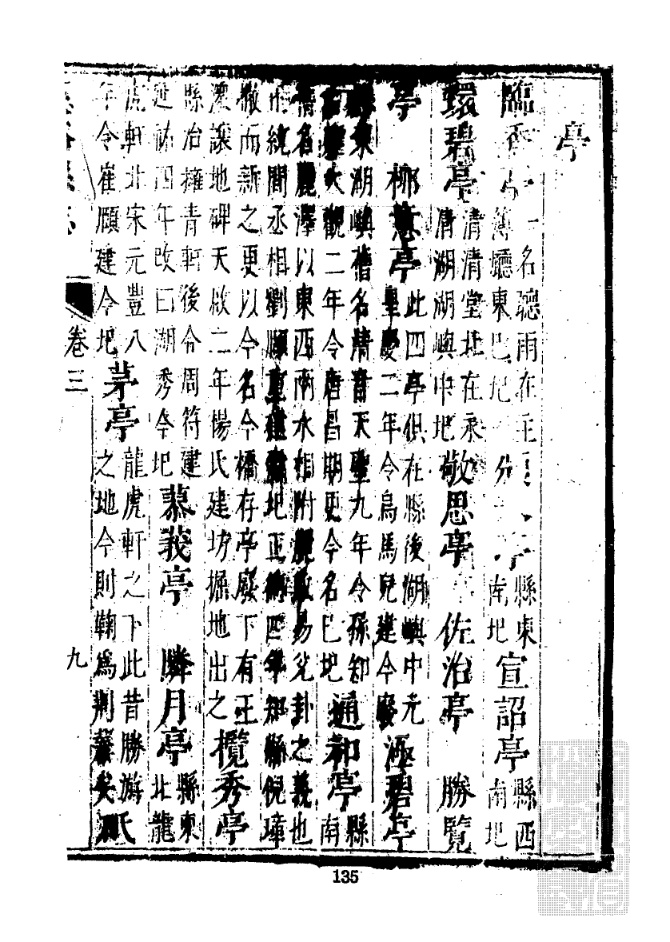 亭
臨
一名聽雨在主
簿廳東已圯
亭
縣東
南圯
宣詔亭
縣西
南圯
環碧亭
清清堂北在永
清湖湖嶼中圯
敬思亭 佐治亭 勝覽
亭 柳意亭
此四亭俱在縣後湖嶼中元
皇慶二年令烏馬兒建今廢
極碧亭
縣東湖嶼舊名清音天聖九年令孫知
大觀二年令唐昌期更今名已圯
通和亭
縣
南
舊名麗澤以東西兩水相附麗取易兌卦之義也
正統間丞相劉順重建圯正德四年知縣倪璋
撤而新之更以今名今橋存亭廢下有王
濃讓地碑天啟二年楊氏建坊掘地出之
攬秀亭
縣治擁青軒後令周符建
延祐四年改曰湖秀今圯
慕義亭 隣月亭
縣東
北龍
虎軒北宋元豐八
年令崔頤建今圯
茅亭
龍虎軒之下此昔勝游
之地今則鞠為荊蓁矣
氏
卷三
九
135